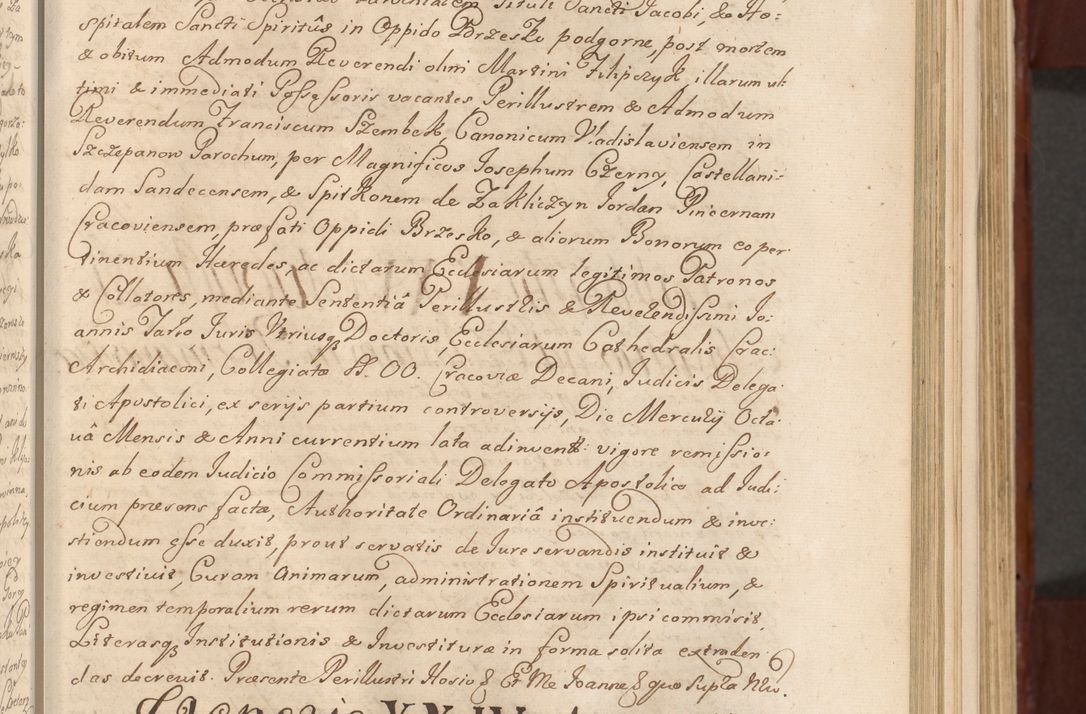 Parochialem Tituli Sancti Jacobi, & Ho-
spitalem Sancti Spiritûs in Oppido Brzesko podgorne, post mortem
& obitum Admodum Reverendi olim Martini Filipczyk, illarum ul-
timi & immediati Possessoris vacantes Perillustrem & Admodum
Reverendum Franciscum Szembek, Canonicum Vladislaviensem in
Szczepanow Parochum, per Magnificos Josephum Czerny, Castellani-
dam Sandecensem, & Spitkonem de Zakliczyn Jordan Pincernam
Cracoviensem, præfati Oppidi Brzesko, & aliorum Bonorum eo per-
tinentium Hæredes, ac dictarum Ecclesiarum legitimos Patronos
& Collatores, mediante Sententiâ Perillustris & Reverendissimi Jo-
annis Tarło Juris Utriusq3 Doctoris, Ecclesiarum Cathedralis Crac:
Archidiaconi, Collegiatæ SS. OO. Cracoviæ Decani, Judicis Delega-
ti Apostolici, ex serijs partium controversijs, Die Mercurij Octa-
uâ Mensis & Anni currentium lata adinvent: vigore remissio-
nis ab eodem Judicio Commissoriali Delegato Apostolico ad Judi-
cium præsens factæ, Authoritate Ordinariâ instituendum & inve-
stiendum esse duxit, prout servatis de Jure servandis instituit &
investiuit, Curam Animarum, administrationem Spiritualium, &
regimen temporalium rerum dictarum Ecclesiarum ipsi commisit,
Literasq3 Institutionis & Investituræ in forma solita extraden-
das decrevit. Præsente Perillustri Hosio & Et Me Joanne & quo supra